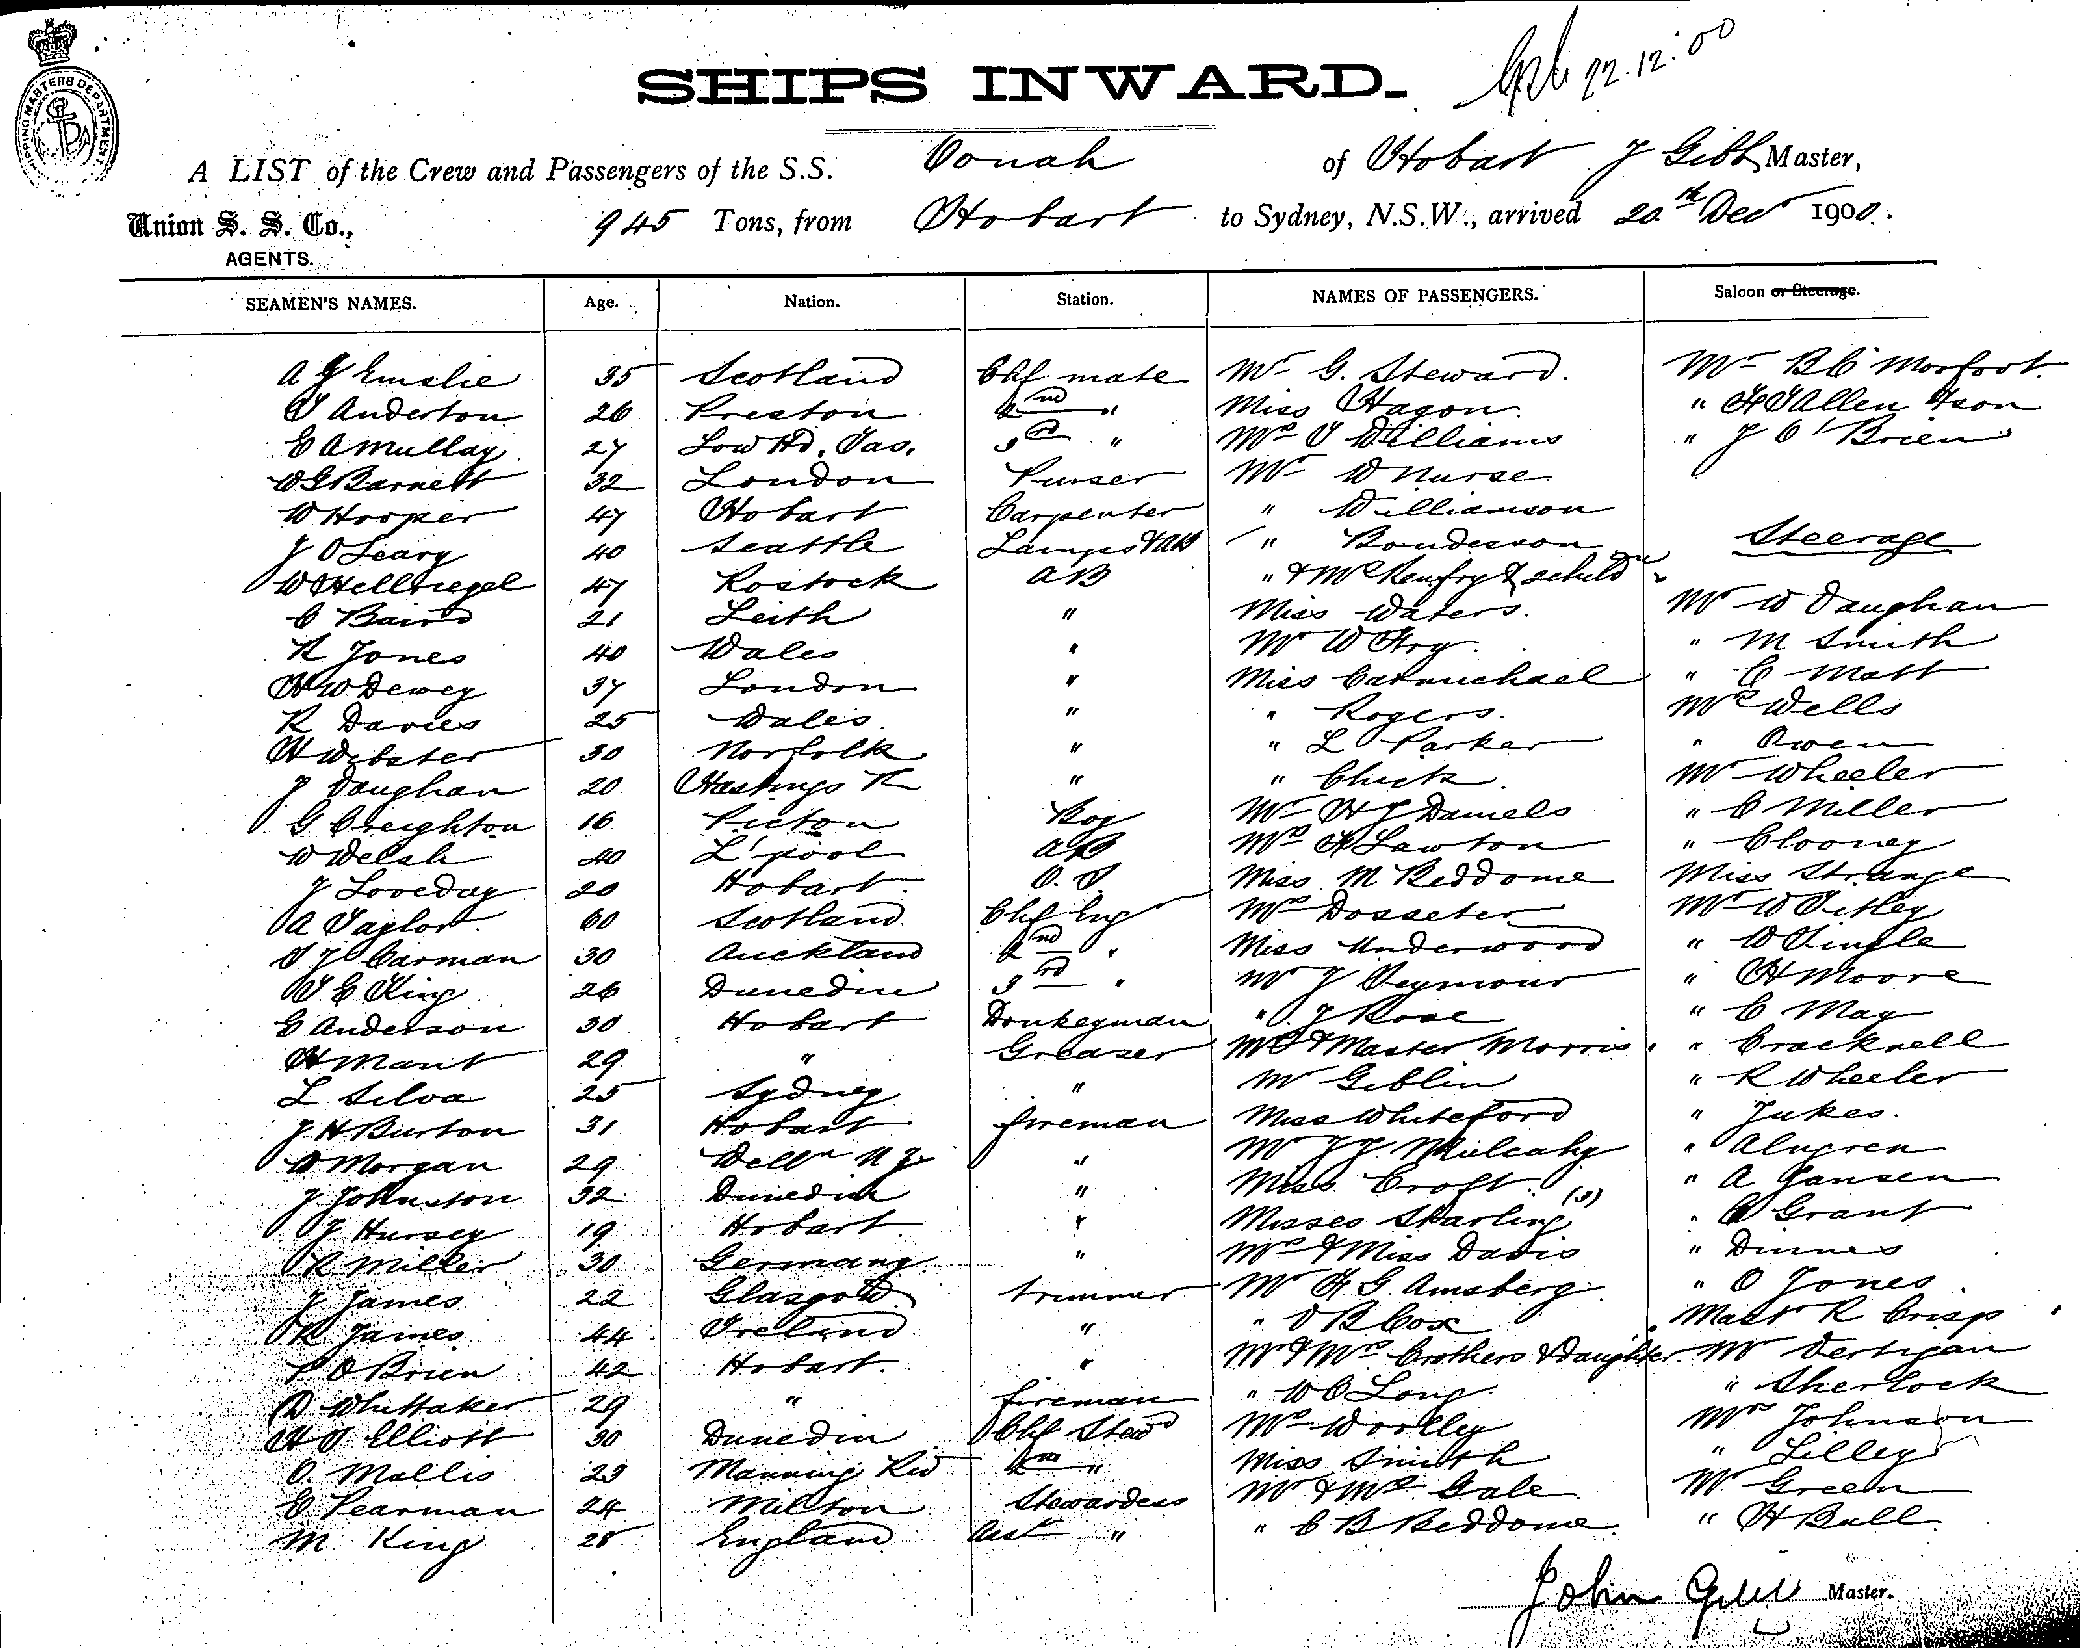 SHIPPING MASTERS DEPARTMENT
22.12.00
SHIPS INWARD.
A LIST of the Crew and Passengers of the S.S. Oonah of Hobart J Gibb Master,
Union S. S. Co., 945 Tons, from Hobart to Sydney, N.S.W., arrived 20th Decr 1900.
AGENTS.
SEAMEN'S NAMES. Age. Nation. Station. NAMES OF PASSENGERS. Saloon or Steerage.
A J Emslie 35 Scotland Chf mate Mr G. Steward. Mr B C Morfort.
T Anderton 26 Preston 2nd " Miss Hagon. " F J Allen & son
E A Mullay 27 Low Hd. Tas. 3rd " Mrs T Williams " J O'Brien
W G Barnett 32 London Purser Mr W Nurse
W Hooper 47 Hobart Carpenter " Williamson
J O'Leary 40 Seattle Lamps & AB " Bondesson Steerage
W Hellriegel 47 Rostock AB " & Mrs Renfry &
C Baird 21 Leith " Miss Waters. Mr W Vaughan
R Jones 40 Wales " Mr W Fry. " M Smith
H W Dewey 37 London " Miss Carmichael " C Mott
R Davies 25 Wales " " Rogers. Mrs Wells
H Webster 30 Norfolk " " L Parker " Owen
J Vaughan 20 Hastings " " Chick. Mr Wheeler
G Creighton 16 Picton Boy Mr H J Daniels " C Miller
W Welsh 40 L'pool AB Mrs F Lawton " Clooney
J Loveday 20 Hobart O.S Miss M Beddome Miss Strange
A Taylor 60 Scotland Chf Eng Mrs Dosseter Mr W Titley
T J Carman 30 Auckland 2nd " Miss Underwood " W Single
T E King 26 Dunedin 3rd " Mr J Seymour " H Moore
G Anderson 30 Hobart Donkeyman " J Rose " C May
H Mant 29 " Greaser Mrs & Master Morris " Cracknell
L Silva 25 Sydney " Mr Giblin " R Wheeler
J H Burton 31 Hobart fireman Miss Whiteford " Jukes.
W Morgan 29 Welln N Z " Mr J J Mulcahy " Alngren
J Johnston 32 Dunedin " Miss Croft. " A Jansen
J Hursey 19 Hobart " Misses Sharling " Grant
R Miller 30 Germany " Mrs & Miss Davis " Dinnes
J James 22 Glasgow trimmer Mr F G. Amsberg. " O Jones
R James 44 Ireland " " O B Cox Mastr R Crisp
P O'Brien 42 Hobart. " Mr & Mrs Crothers & Daughter Mr Vertigan
D Whittaker 29 " fireman " W C Long. " Sherlock
H T Elliott 30 Dunedin Chf Stewd Mrs Woolley Mrs Johnson
O. Mollis 23 Manning Riv 2nd " Miss Smith " Lilley
E Pearman 24 Milton Stewardess Mr & Mrs Gale Mr Green
M King 28 England Asst " " C B Beddome. " H Bull
John Gibb Master.